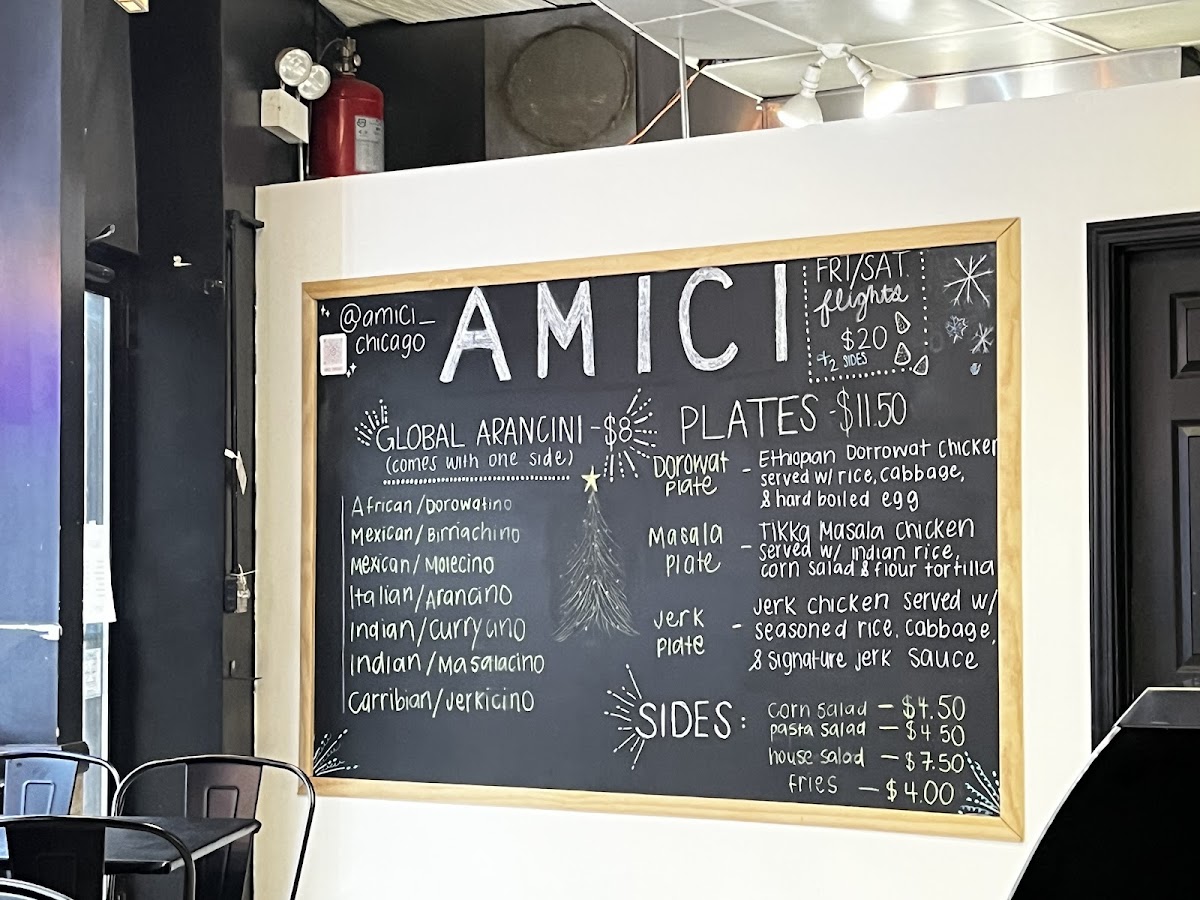 @amici_
chicago
AMICI
FRI/SAT.
flights
$20
+2 SIDES
GLOBAL ARANCINI - $8
(comes with one side)
African/Dorowatino
Mexican/Birriachino
Mexican/Molecino
Italian/Arancino
Indian/Currycino
Indian/Masalacino
Carribian/Jerkicino
PLATES - $11.50
Dorowat
Plate
- Ethiopan Dorrowat Chicken
served w/ rice, cabbage,
& hard boiled egg
Masala
Plate
- Tikka Masala Chicken
served w/ indian rice,
corn salad & flour tortilla
Jerk
Plate
- Jerk chicken served w/
seasoned rice, cabbage,
& signature jerk sauce
SIDES:
corn salad - $4.50
pasta salad - $4.50
house salad - $7.50
fries - $4.00